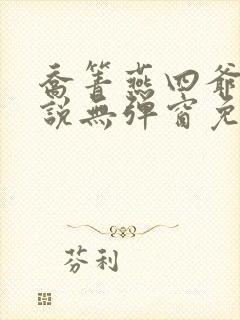 喬箐燕四爺
說無彈窗免
芬利